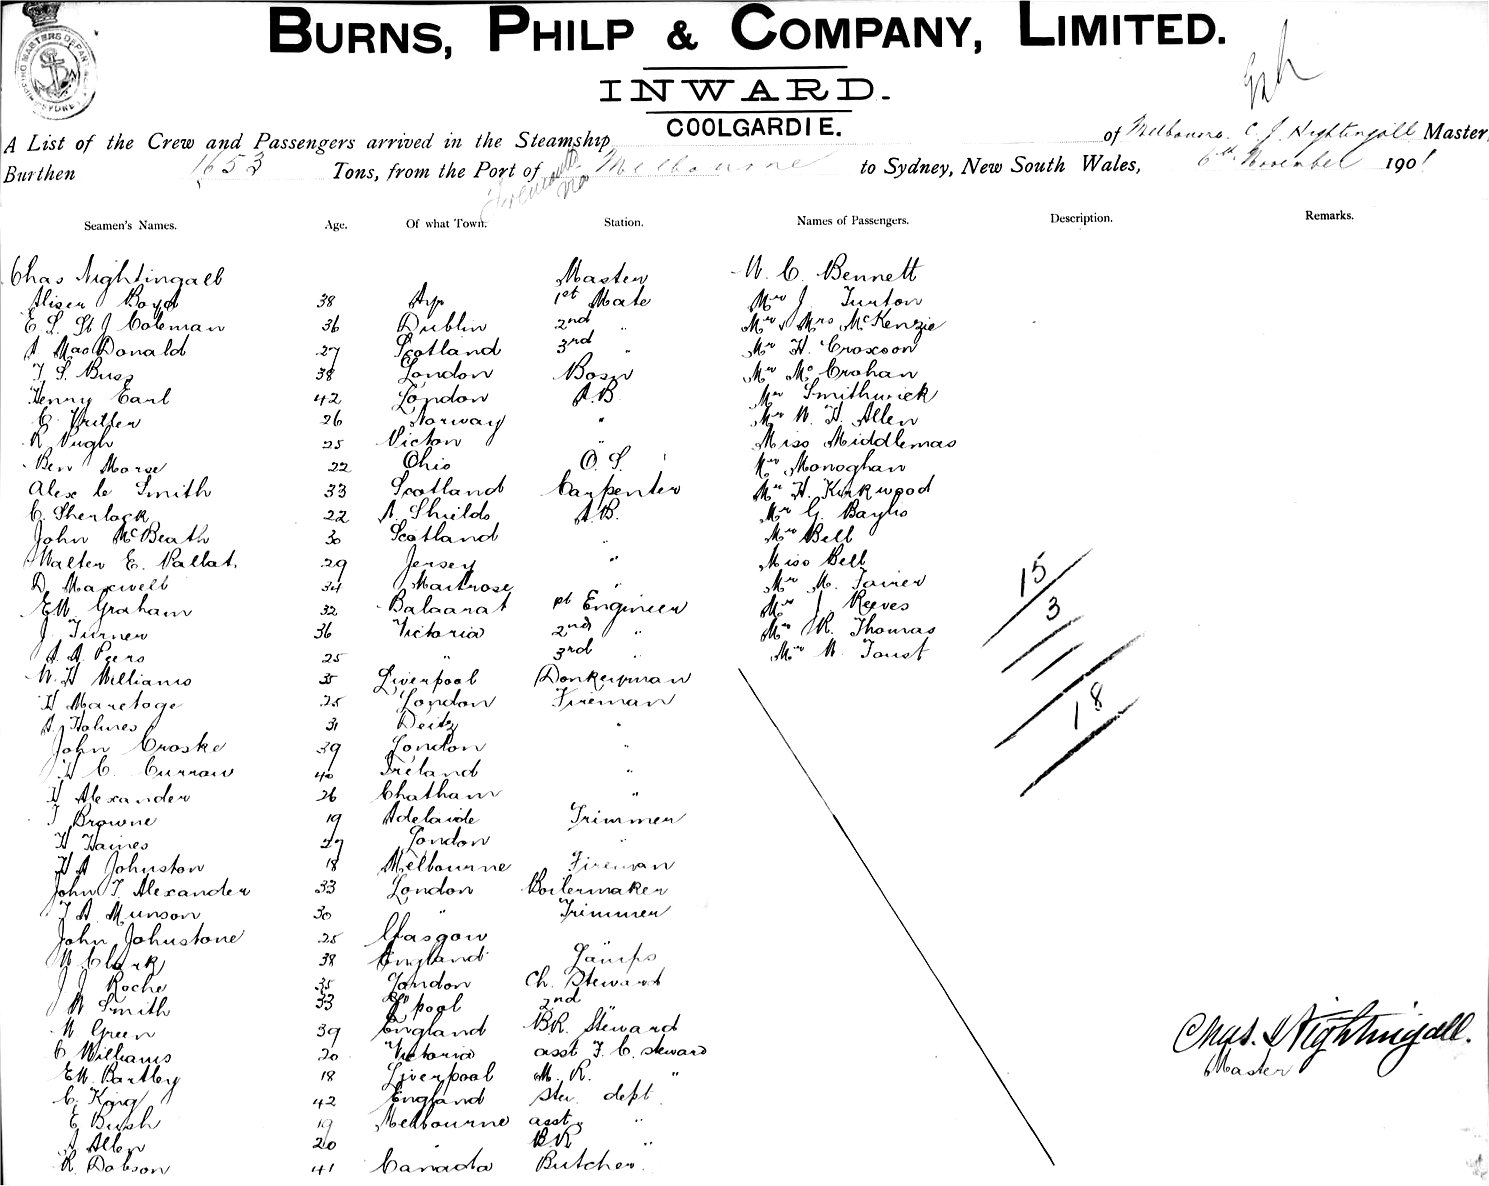 BURNS, PHILP & COMPANY, LIMITED.
INWARD.
COOLGARDIE.
A List of the Crew and Passengers arrived in the Steamship of Melbourne. C. J. Nightingall Master,
Burthen 1653 Tons, from the Port of Melbourne to Sydney, New South Wales, 6th November 1901
Fremantle via
Seamen's Names. Age. Of what Town. Station. Names of Passengers. Description. Remarks.
Chas Nightingall Master W. C. Bennett
Boyd 38 Ayr 1st Mate Mr J. Turton
E. S. St J Coleman 36 Dublin 2nd " Mr & Mrs McKenzie
A MacDonald 27 Scotland 3rd " Mr H. Croxoon
T. S. Buss 38 London Bosn Mr McCrohan
Henry Earl 42 London A.B. Mr Smithwick
C. 26 Norway " Mr W. H. Allen
R Pugh 25 Victoria " Miss Middlemas
Ben Morse 22 Ohio O.S. Mr Monoghan
Alex Smith 33 Scotland Carpenter Mr H. Kirkwood
C. Sherlock 22 A. Shields A.B. Mr G. Baylis
John McBeath 30 Scotland " Mr Bell
Walter E. Pallat. 29 Jersey " Miss Bell
D. Maxwell 34 Montrose " Mr M.
EW Graham 32 Balaarat 1st Engineer Mr J. Reeves
J. Turner 36 Victoria 2nd " Mr R. Thomas
A. A Peers 25 " 3rd " Mr W. Foust
W. H Williams 35 Liverpool Donkeyman
H 25 London Fireman
A. Holmes 31 "
John Croske 39 London "
H C. Curran 40 Ireland "
H Alexander 26 Chatham "
T Browne 19 Adelaide Trimmer
H Haines 27 London "
H A Johnston 18 Melbourne Fireman
John T. Alexander 33 London Boilermaker
T A. Munson 30 " Trimmer
John Johnstone 25 Glasgow "
W Clark 38 England Lamps
J J Roche 35 London Ch. Steward
W Smith 33 L'pool 2nd "
W Green 39 England BR. Steward
C Williams 20 Victoria asst F. C. steward
EW. Bartley 18 Liverpool M. R. "
C. King 42 England Stew. dept.
E Bush 19 Melbourne asst. "
A Allen 20 " B.R "
R. Dobson 41 Canada Butcher.
15
3
18
Chas. Nightingall.
Master